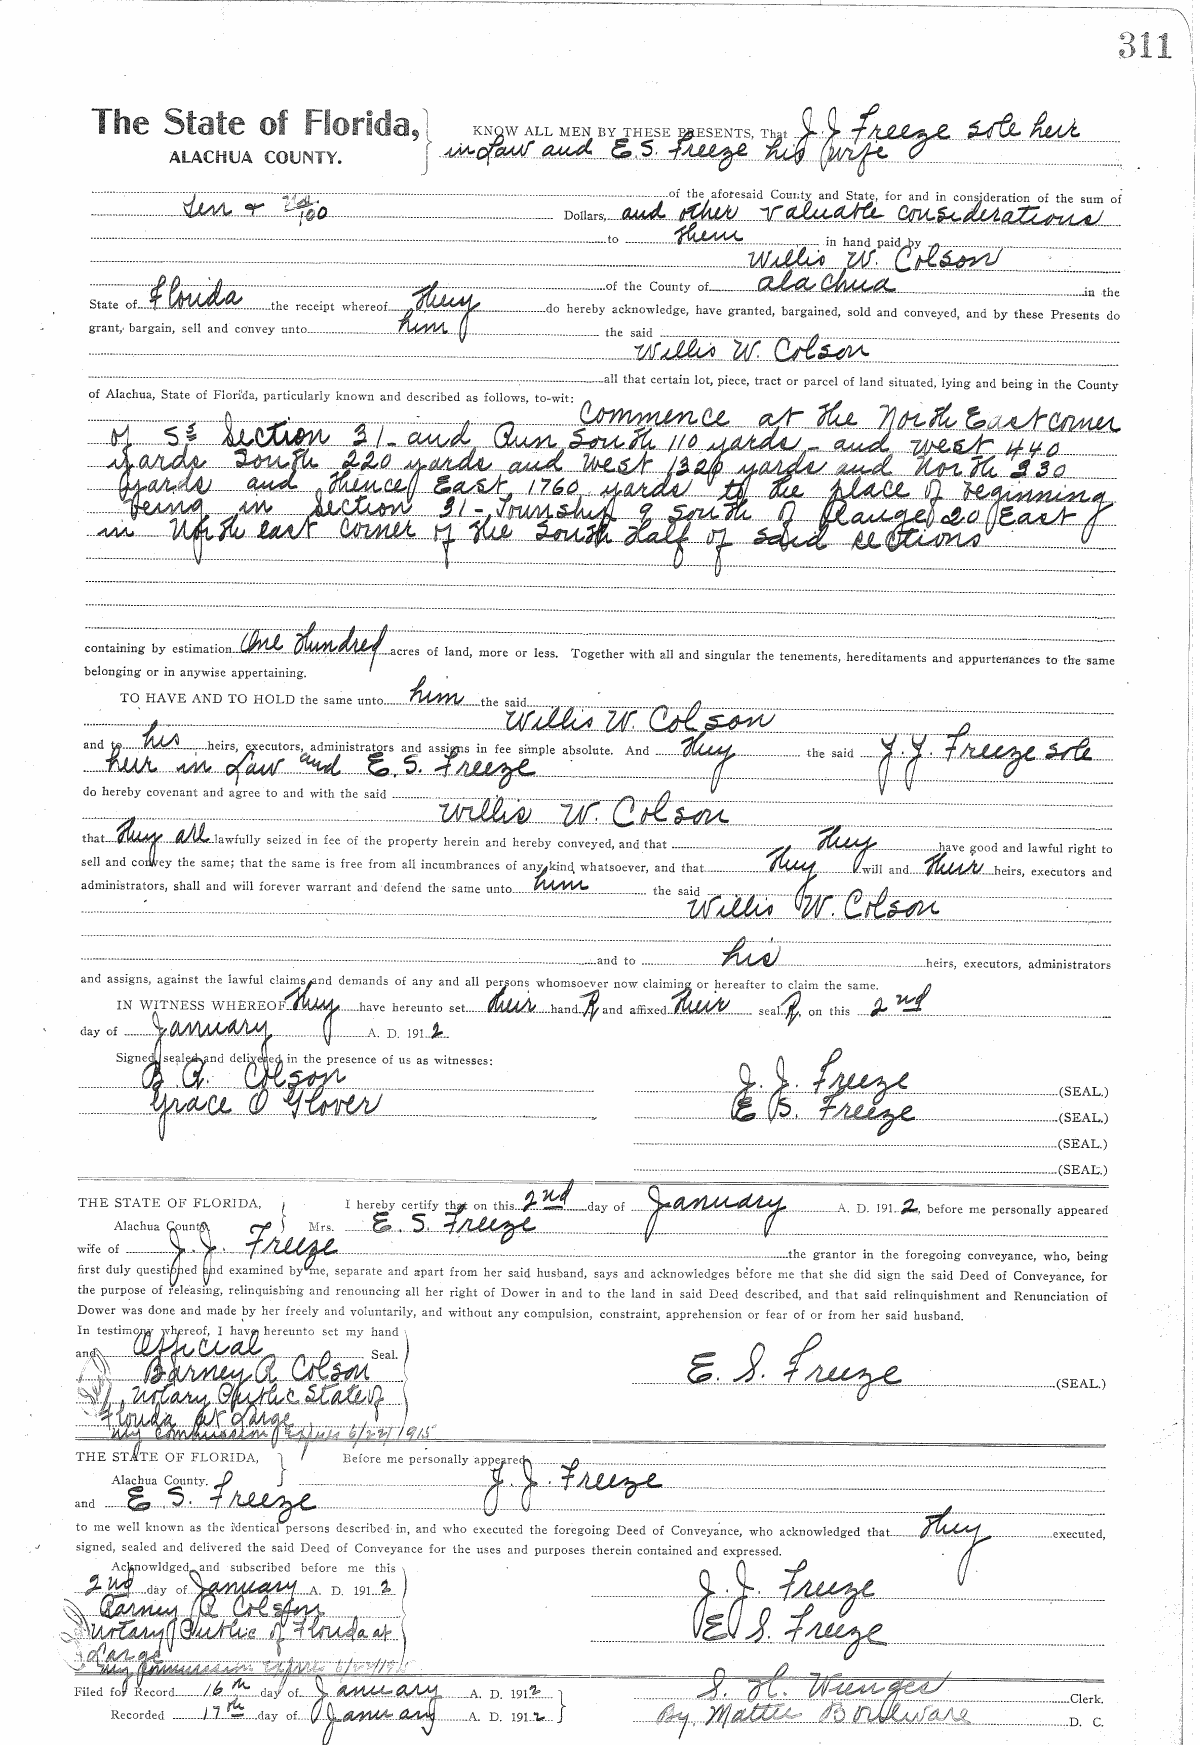 311
The State of Florida,
ALACHUA COUNTY.
KNOW ALL MEN BY THESE PRESENTS, That J. J. Freeze sole heir
in Law and E. S. Freeze his wife
of the aforesaid County and State, for and in consideration of the sum of
Ten & /100 Dollars, and other valuable considerations
to them in hand paid by
Willis W. Colson
of the County of Alachua in the
State of Florida the receipt whereof they do hereby acknowledge, have granted, bargained, sold and conveyed, and by these Presents do
grant, bargain, sell and convey unto him the said
Willis W. Colson
all that certain lot, piece, tract or parcel of land situated, lying and being in the County
of Alachua, State of Florida, particularly known and described as follows, to-wit:
Commence at the North East corner
of Section 31 - and Run South 110 yards - and west 440
yards South 220 yards and West 1320 yards and North 330
yards and thence East 1760 yards to the place of beginning
being in Section 31 - Township 9 South of Range 20 East
in North east corner of the South Half of said sections
containing by estimation One Hundred acres of land, more or less. Together with all and singular the tenements, hereditaments and appurtenances to the same
belonging or in anywise appertaining.
TO HAVE AND TO HOLD the same unto him the said
Willis W. Colson
and to his heirs, executors, administrators and assigns in fee simple absolute. And they the said J. J. Freeze sole
heir in Law and E. S. Freeze
do hereby covenant and agree to and with the said
Willis W. Colson
that they are lawfully seized in fee of the property herein and hereby conveyed, and that they have good and lawful right to
sell and convey the same; that the same is free from all incumbrances of any kind whatsoever, and that they will and their heirs, executors and
administrators, shall and will forever warrant and defend the same unto him the said
Willis W. Colson
and to his heirs, executors, administrators
and assigns, against the lawful claims and demands of any and all persons whomsoever now claiming or hereafter to claim the same.
IN WITNESS WHEREOF they have hereunto set their hand and affixed their seal, on this 2nd
day of January A. D. 1912
Signed, sealed and delivered in the presence of us as witnesses:
B. R. Colson
Grace O Glover
J. J. Freeze (SEAL.)
E. S. Freeze (SEAL.)
(SEAL.)
(SEAL.)
THE STATE OF FLORIDA, I hereby certify that on this 2nd day of January A. D. 1912, before me personally appeared
Alachua County Mrs. E. S. Freeze
wife of J. J. Freeze the grantor in the foregoing conveyance, who, being
first duly questioned and examined by me, separate and apart from her said husband, says and acknowledges before me that she did sign the said Deed of Conveyance, for
the purpose of releasing, relinquishing and renouncing all her right of Dower in and to the land in said Deed described, and that said relinquishment and Renunciation of
Dower was done and made by her freely and voluntarily, and without any compulsion, constraint, apprehension or fear of or from her said husband.
In testimony whereof, I have hereunto set my hand
and Official Seal.
Barney R Colson
Notary Public State of
Florida at Large
My commission Expires 6/22/1915
E. S. Freeze (SEAL.)
THE STATE OF FLORIDA, Before me personally appeared
Alachua County. J. J. Freeze
and E. S. Freeze
to me well known as the identical persons described in, and who executed the foregoing Deed of Conveyance, who acknowledged that they executed,
signed, sealed and delivered the said Deed of Conveyance for the uses and purposes therein contained and expressed.
Acknowldged and subscribed before me this
2nd day of January A. D. 1912
Barney R Colson
Notary Public of Florida at
Large
My Commission Expires 6/22/1915
J. J. Freeze
E S. Freeze
Filed for Record 16th day of January A. D. 1912
Recorded 17th day of January A. D. 1912
S. H. Wienges Clerk.
By Mattie Boulware D. C.